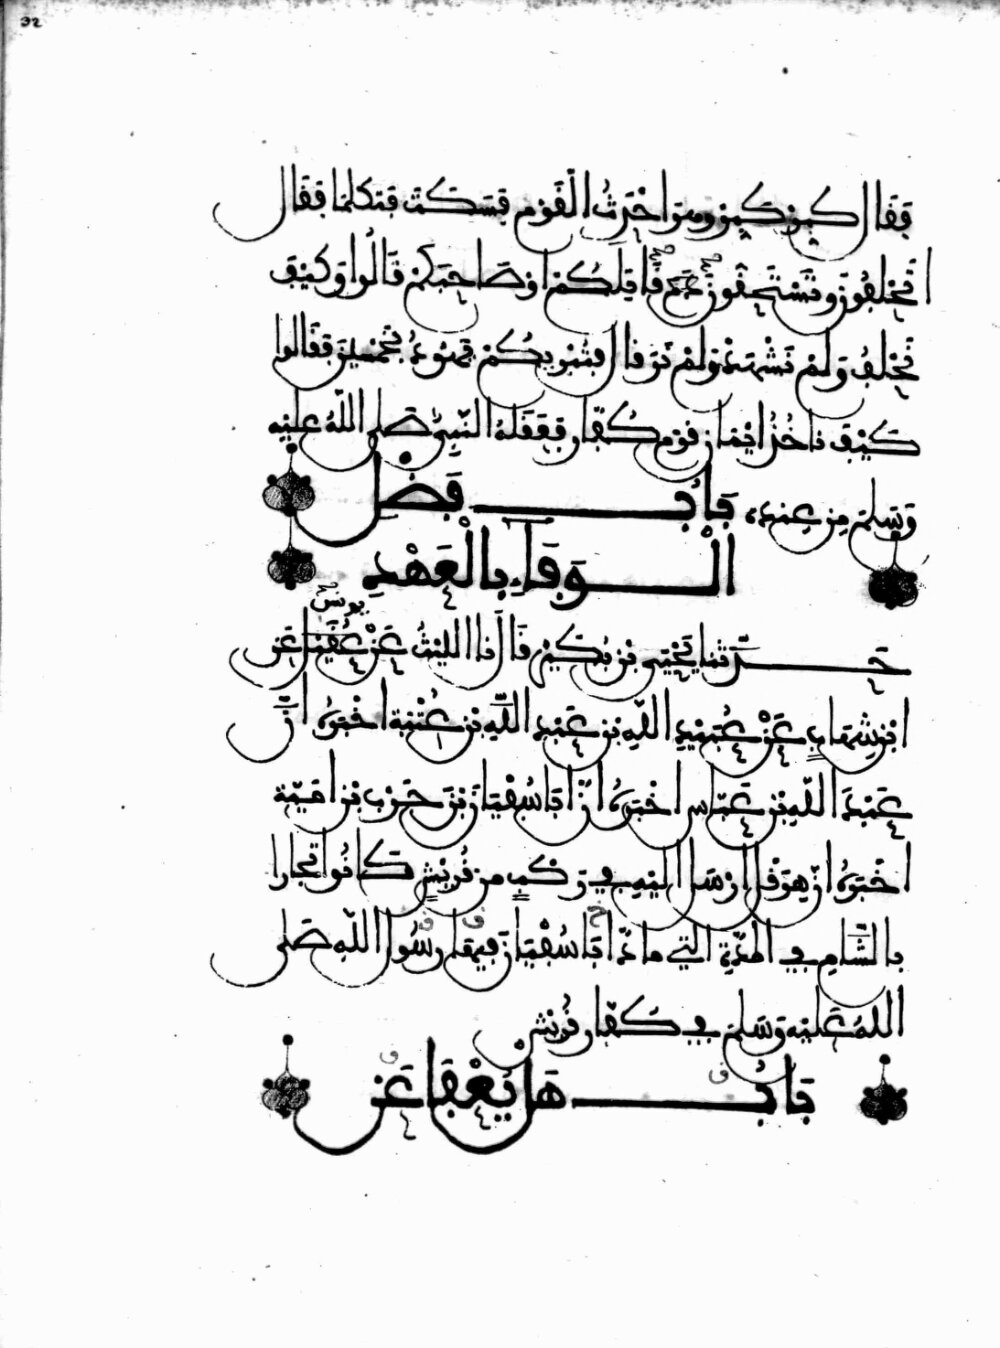 32
فَقَالَ كَبِّرْ كَبِّرْ وهو أَحْدَثُ الْقَوْمِ فَسَكَتَ فَتَكَلَّمَا فَقَالَ
أَتَحْلِفُونَ وتَسْتَحِقُّونَ دَمَ قَاتِلِكُمْ أوْ صَاحِبِكُمْ قَالُوا وَكَيْفَ
نَحْلِفُ وَلَمْ نَشْهَدْ وَلَمْ نَرَ قَالَ فتُبْرِيكُمْ يَهُودُ بِخَمْسِينَ فَقَالُوا
كَيْفَ نَاخُذُ أَيْمَانَ قَوْمٍ كُفَّارٍ فَعَقَلَهُ النَّبِيُّ صَلَّى اللَّهُ عَلَيْهِ
وَسَلَّمَ مِنْ عِنْدِهِ بَابُ فَضْلِ
الْوَفَاءِ بِالْعَهْدِ
يونس
حَدَّثَنَا يَحْيَى بْنُ بُكَيْرٍ قَالَ نَا اللَّيْثُ عَنْ عُقَيْلٍ عَنِ
ابْنِ شِهَابٍ عَنْ عُبَيْدِ اللَّهِ بْنِ عَبْدِ اللَّهِ بْنِ عُتْبَةَ أَخْبَرَهُ أَنَّ
عَبْدَ اللَّهِ بْنَ عَبَّاسٍ أَخْبَرَهُ أَنَّ أَبَا سُفْيَانَ بْنَ حَرْبِ بْنِ أُمَيَّةَ
أَخْبَرَهُ أَنَّ هِرَقْلَ أَرْسَلَ إِلَيْهِ فِي رَكْبٍ مِنْ قُرَيْشٍ كَانُوا تِجَارًا
بِالشَّامِ فِي الْمُدَّةِ الَّتِي مَادَّ أَبَا سُفْيَانَ فِيهَا رَسُولُ اللَّهِ صَلَّى
اللهُ عَلَيْهِ وَسَلَّمَ فِي كُفَّارِ قُرَيْشٍ
بَابُ هَلْ يُعْفَا عَنِ